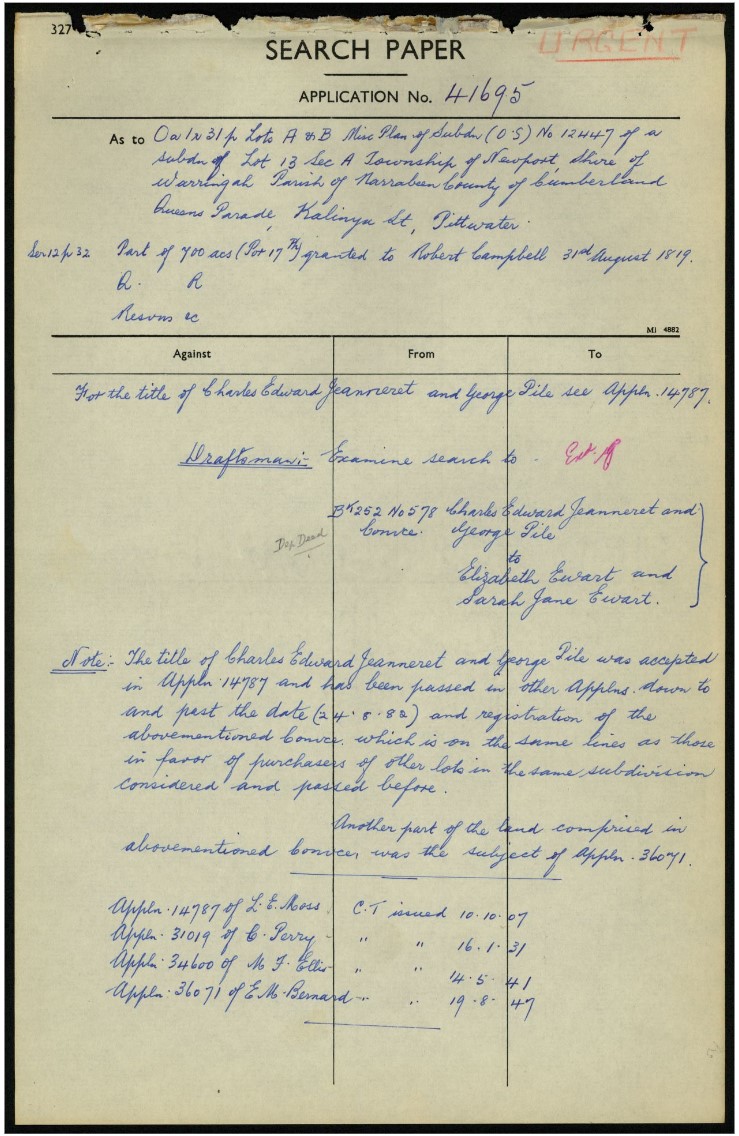 327
URGENT
SEARCH PAPER
APPLICATION No. 41695
As to 0a 1r 31p Lots A & B Misc Plan of Subdn (O S) No 12447 of a
subdn of Lot 13 Sec A Township of Newport, Shire of
Warringah Parish of Narrabeen County of Cumberland
Queens Parade, Kalinya St, Pittwater.
Ser 12 p 32 Part of 700 acs (Por 17 Ph) granted to Robert Campbell 31st August 1819.
Q. R
Resvns &c
MI 4882
Against From To
For the title of Charles Edward Jeanneret and George Pile see Appln. 14787.
Draftsman:- Examine search to
Bk 252 No 578 Charles Edward Jeanneret and
Convce. George Pile
Dep Deed
to
Elizabeth Ewart and
Sarah Jane Ewart.
Note:- The title of Charles Edward Jeanneret and George Pile was accepted
in Appln. 14787 and has been passed in other Applns. down to
and past the date (24.8.82) and registration of the
abovementioned Convce. which is on the same lines as those
in favor of purchasers of other lots in the same subdivision
considered and passed before.
Another part of the land comprised in
abovementioned Convce, was the subject of Appln. 36071.
Appln. 14787 of L. E. Moss. C.T issued 10.10.07
Appln. 31019 of C. Perry - " " 16.1.31
Appln. 34600 of M F. Ellis - " " 14.5.41
Appln. 36071 of E.M. Bernard - " " 19.8.47